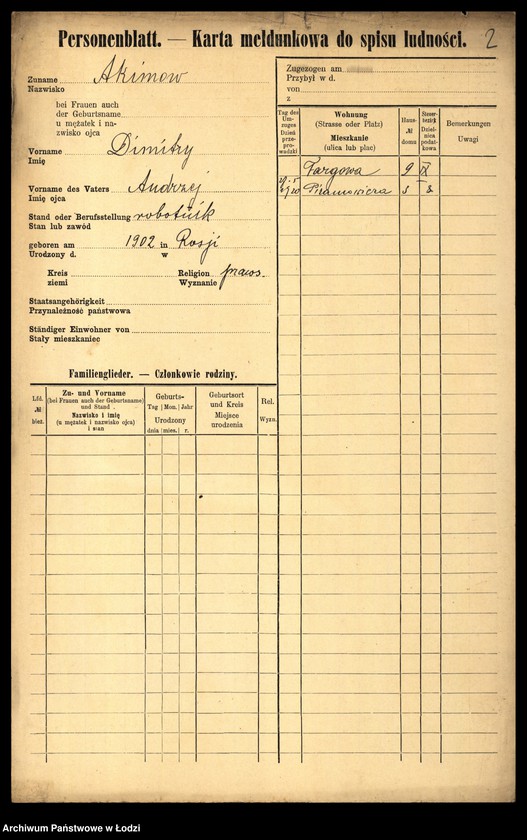 Personenblatt. — Karta meldunkowa do spisu ludności. 2
Zuname Akimow
Nazwisko
bei Frauen auch
der Geburtsname
u mężatek i na-
zwisko ojca
Vorname Dimitry
Imię
Vorname des Vaters Andrzej
Imię ojca
Stand oder Berufsstellung robotnik
Stan lub zawód
geboren am 1902 in Rosji
Urodzony d. w
Kreis Religion praws.
ziemi Wyznanie
Staatsangehörigkeit
Przynależność państwowa
Ständiger Einwohner von
Stały mieszkaniec
Zugezogen am
Przybył w d.
von
z
Tag des Um-zuges Dzień prze-pro-wadzki
Wohnung
(Strasse oder Platz)
Mieszkanie
(ulica lub plac)
Haus-
№
domu
Steuer-
bezirk
Dziel-
nica
podat-
kowa
Bemerkungen
Uwagi
Targowa 9 IX
Piramowicza
Familienglieder. — Członkowie rodziny.
Lfd.
№
bież.
Zu- und Vorname
(bei Frauen auch der Geburtsname)
und Stand
Nazwisko i imię
(u mężatek i nazwisko ojca)
i stan
Geburts-
Tag Mon. Jahr
Urodzony
dnia mies. r.
Geburtsort
und Kreis
Miejsce
urodzenia
Rel.
Wyzn.
Archiwum Państwowe w Łodzi